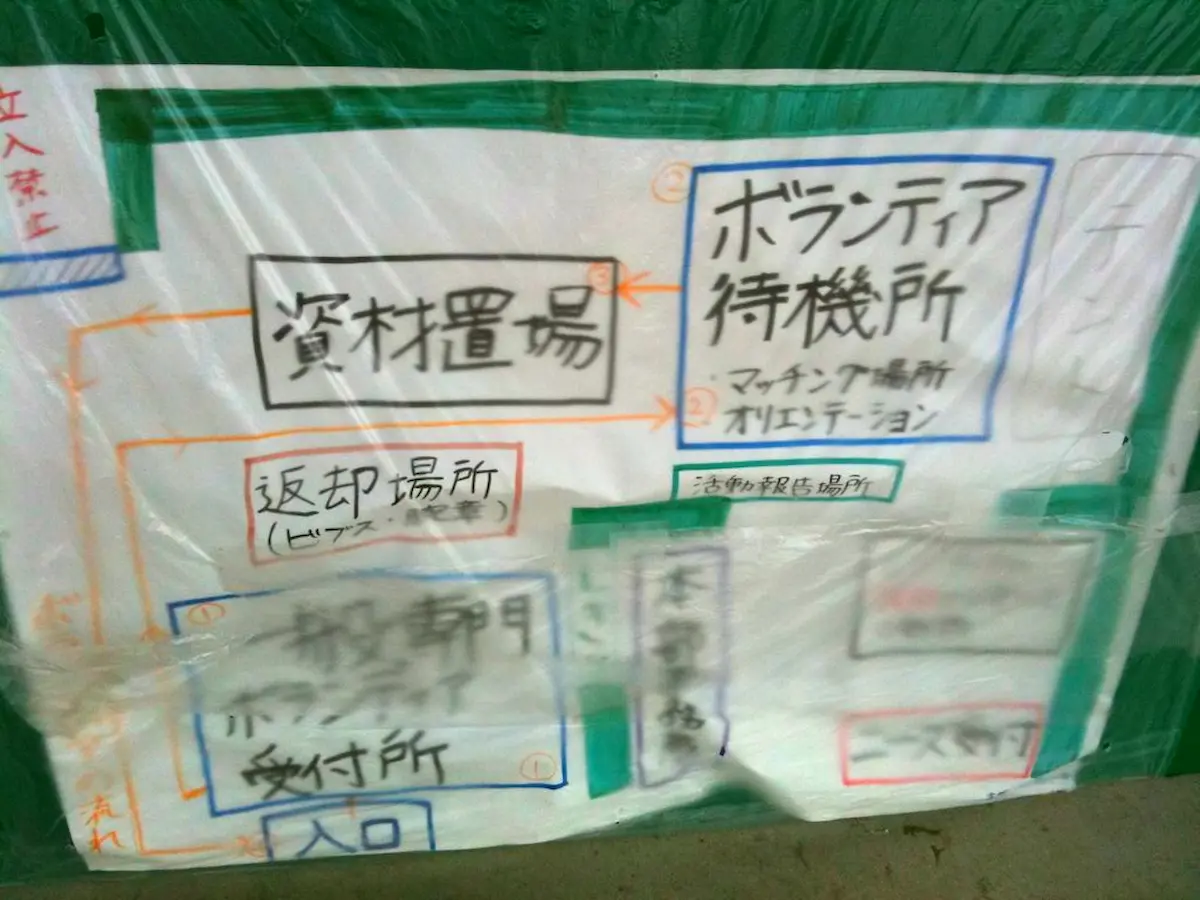 立入禁止
②
ボランティア
待機所
・マッチング場所
②
オリエンテーション
③
資材置場
返却場所
(ビブス・腕章)
活動報告場所
①
一般・専門
ボランティア
受付所
①
入口
本部事務
ニーズ受付
の流れ